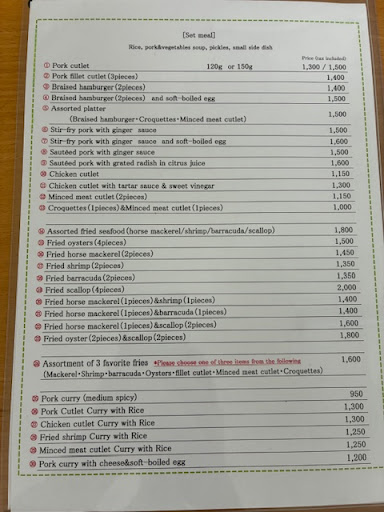 [Set meal]
Rice, pork&vegetables soup, pickles, small side dish
Price (tax included)
① Pork cutlet 120g or 150g 1,300 / 1,500
② Pork fillet cutlet (3pieces) 1,400
③ Braised hamburger (2pieces) 1,400
④ Braised hamburger (2pieces) and soft-boiled egg 1,500
⑤ Assorted platter 1,500
(Braised hamburger・Croquettes・Minced meat cutlet)
⑥ Stir-fry pork with ginger sauce 1,500
⑦ Stir-fry pork with ginger sauce and soft-boiled egg 1,600
⑧ Sautéed pork with ginger sauce 1,500
⑨ Sautéed pork with grated radish in citrus juice 1,600
⑩ Chicken cutlet 1,150
⑪ Chicken cutlet with tartar sauce & sweet vinegar 1,300
⑫ Minced meat cutlet (2pieces) 1,150
⑬ Croquettes (1pieces)&Minced meat cutlet (1pieces) 1,000
⑭ Assorted fried seafood (horse mackerel/shrimp/barracuda/scallop) 1,800
⑮ Fried oysters (4pieces) 1,500
⑯ Fried horse mackerel (2pieces) 1,450
⑰ Fried shrimp (2pieces) 1,350
⑱ Fried barracuda (2pieces) 1,350
⑲ Fried scallop (4pieces) 2,000
⑳ Fried horse mackerel (1pieces)&shrimp (1pieces) 1,400
㉑ Fried horse mackerel (1pieces)&barracuda (1pieces) 1,400
㉒ Fried horse mackerel (1pieces)&scallop (2pieces) 1,600
㉓ Fried oyster (2pieces)&scallop (2pieces) 1,800
㉔ Assortment of 3 favorite fries *Please choose one of three items from the following 1,600
(Mackerel・Shrimp・barracuda・Oysters・fillet cutlet・Minced meat cutlet・Croquettes)
㉕ Pork curry (medium spicy) 950
㉖ Pork Cutlet Curry with Rice 1,300
㉗ Chicken cutlet Curry with Rice 1,300
㉘ Fried shrimp Curry with Rice 1,250
㉙ Minced meat cutlet Curry with Rice 1,250
㉚ Pork curry with cheese&soft-boiled egg 1,200